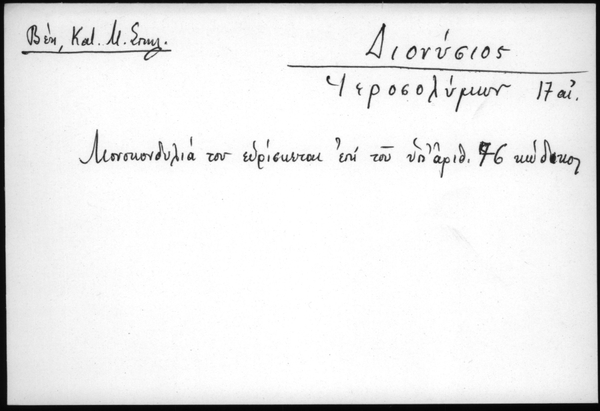 Βέη, Κατ. Μ. Σπηλ.
Διονύσιος
Ἱεροσολύμων 17 αἰ.
Μονοκονδυλιά του εὑρίσκεται ἐπί τοῦ ὑπ' ἀριθ. 76 κώδικος